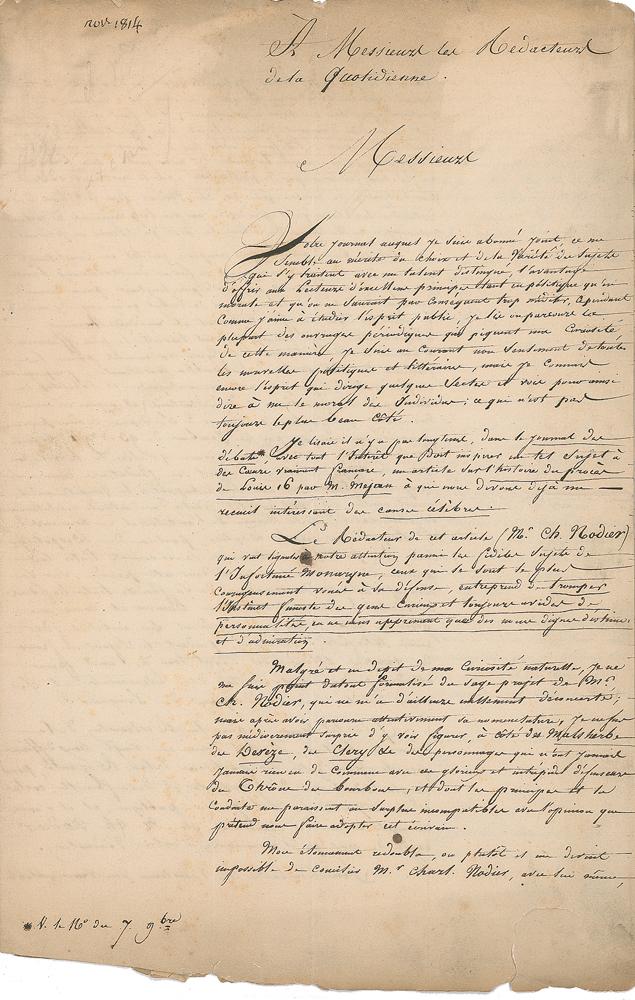 nov. 1814
A Messieurs les Rédacteurs
de la Quotidienne.
Messieurs
Votre journal auquel je suis abonné joint, ce me
semble au mérite du choix et de la variété des sujets
qui s'y traitent avec un talent distingué, l'avantage
d'offrir aux Lecteurs d'excellens principes tant en politique qu'en
morale et qu'on ne saurait par conséquent trop méditer. Cependant
comme j'aime à étudier l'esprit public, je lis ou parcours la
plupart des ouvrages périodiques qui piquent ma curiosité
de cette manière, je suis au courant non seulement de toutes
les nouvelles politiques et littéraires, mais je connais
encore l'esprit qui dirige quelques Sectes et vois pour ainsi
dire à nu le moral des Individus; ce qui n'est pas
toujours le plus beau côté.
Je lisais il n'y a pas longtems, dans le journal des
débats* avec tout l'Intérêt que doit inspirer un tel sujet à
des Cœurs vraiment français, un article sur l'histoire du procès
de Louis 16 par M. Mejan à qui nous devons déjà un
recueil intéressant des causes célèbres.
Le Rédacteur de cet article (Mr. Ch. Nodier)
qui veut signaler à notre attention parmi les fidèles Sujets de
l'Infortuné Monarque, ceux qui se sont le plus
courageusement voués à sa défense, entreprend de tromper
l'Instinct funeste des gens curieux et toujours avides de
personnalités, en ne nous apprenant que des noms dignes d'estime
et d'admiration.
Malgré et en dépit de ma curiosité naturelle, je ne
me suis point du tout formalisé du sage projet de Mr.
Ch. Nodier, qui ne m'a d'ailleurs nullement déconcerté;
mais après avoir parcouru attentivement sa nomenclature, je ne fus
pas médiocrement surpris d'y voir figurer, à côté des Malsherbes
des Desèze, des Clery &c des personnages qui n'ont jamais
jamais rien eu de commun avec ces glorieux et intrépides défenseurs
du Thrône des Bourbons, et dont les principes et la
conduite me paraissent au surplus incompatibles avec l'opinion que
prétend nous faire adopter cet écrivain.
Mon étonnement redouble, ou plutôt il me devient
impossible de concilier Mr. Charl. Nodier, avec lui même,
* V. le No du 7 9bre